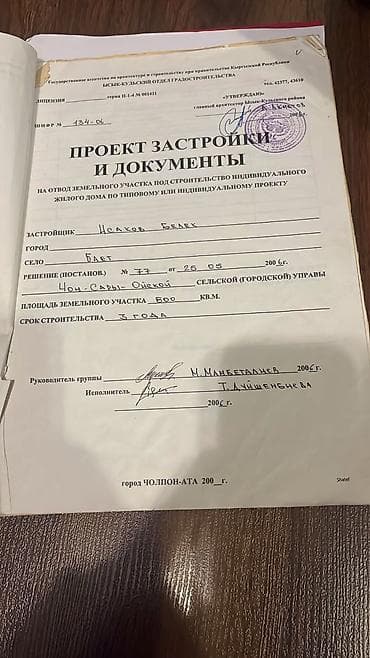 Государственное агентство по архитектуре и строительству при правительстве Кыргызской Республики
ЫСЫК-КУЛЬСКИЙ ОТДЕЛ ГРАДОСТРОИТЕЛЬСТВА
ЛИЦЕНЗИЯ серия П-1-4 № 001421 тел. 42377, 43610
«УТВЕРЖДАЮ»
главный архитектор Ысык-Кульского района
ШИФР № 134-06 2006г.
ПРОЕКТ ЗАСТРОЙКИ
И ДОКУМЕНТЫ
НА ОТВОД ЗЕМЕЛЬНОГО УЧАСТКА ПОД СТРОИТЕЛЬСТВО ИНДИВИДУАЛЬНОГО
ЖИЛОГО ДОМА ПО ТИПОВОМУ ИЛИ ИНДИВИДУАЛЬНОМУ ПРОЕКТУ
ЗАСТРОЙЩИК Исаков Белек
ГОРОД
СЕЛО Бает
РЕШЕНИЕ (ПОСТАНОВ.) № 77 от 25 05 2006г.
Чон-Сары-Ойской СЕЛЬСКОЙ (ГОРОДСКОЙ) УПРАВЫ
ПЛОЩАДЬ ЗЕМЕЛЬНОГО УЧАСТКА 800 КВ.М.
СРОК СТРОИТЕЛЬСТВА 3 ГОДА
Руководитель группы М. Мамбеталиев 2006г.
Исполнитель Т. Дуйшенбиева
2006г.
город ЧОЛПОН-АТА 200__г.